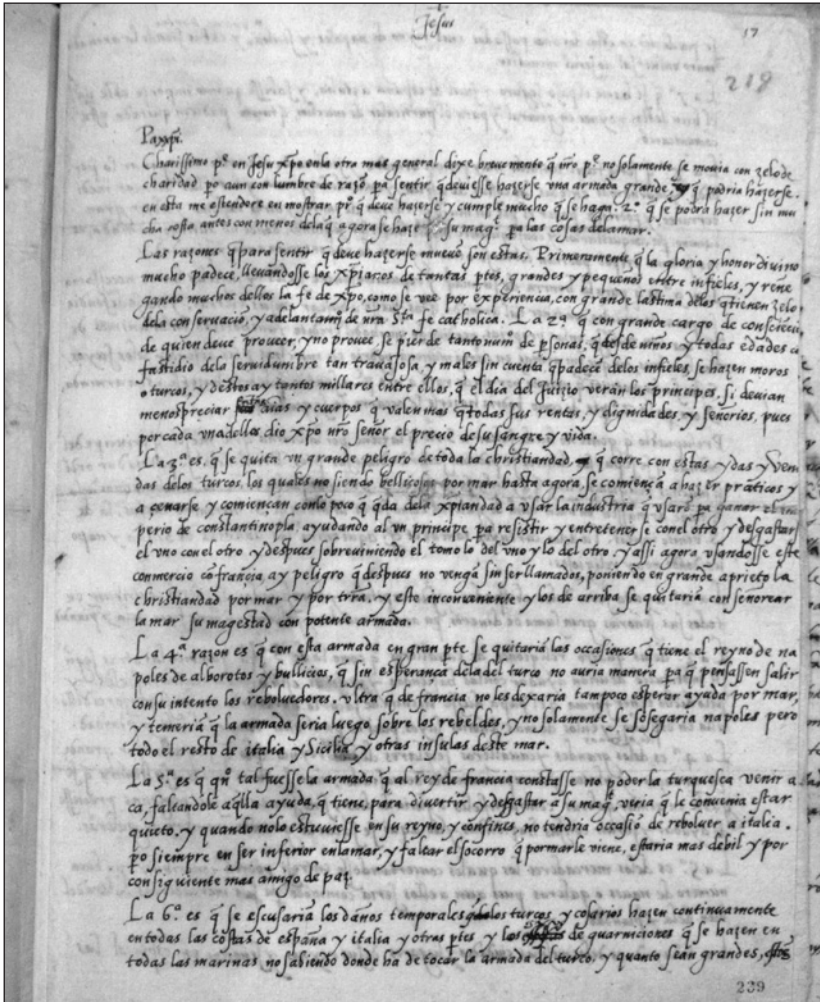 Jesus
17
219
Pax xpi.
Charissimo pe. en Jesu xpo en la otra mas general dixe brevemente q̄ nr̄o pe. no solamente se movia con zelo de
charidad po aun con lumbre de razō pa sentir q̄ deviesse hazerse una armada grande, q̄ podria hazerse.
en esta me estendere en mostrar pro. q̄ deve hazerse y cumple mucho q̄ se haga. 2o. q̄ se podrá hazer sin mu
cha costa antes con menos dela q̄ agora se haze su magt. pa las cosas dela mar.
Las razones q̄ para sentir q̄ deve hazerse mueve son estas. Primeramente q̄ la gloria y honor divino
mucho padece, llevandosse los xpianos de tantas ptes, grandes y pequeños entre infieles, y rene
gando muchos dellos la fe de xpo, como se vee por experiencia, con grande lastima delos q̄ tienen zelo
dela conservació, y adelantamo. de nr̄a Sta. fe catholica. La 2a. q̄ con grande cargo de consciēcia
de quien deve proveer, y no provee, se pierde tanto num̄o de psonas, q̄ desde niños y todas edades
fastidio dela servidumbre tan travajosa, y males sin cuenta q̄ padecē delos infieles, se hazen moros
o turcos, y destos ay tantos millares entre ellos, q̄ el dia del Juizio verán los principes, si devian
menospreciar aīas y cuerpos q̄ valen mas q̄ todas sus rentas, y dignidades, y señorios, pues
por cada una dellos dio xpo nr̄o señor el precio de su sangre y vida.
La 3a. es, q̄ se quita un grande peligro de toda la christiandad, q̄ corre con estas ydas y veni
das delos turcos, los quales no siendo bellicosos por mar hasta agora, se comiençā a hazer práticos y
a cenarse y comiençan con lo poco q̄ q̄da dela xpiandad a usar la industria q̄ usarō pa ganar el im
perio de constantinopla, ayudando al un principe pa resistir y entretenerse con el otro y desgastar
el uno con el otro y despues sobreviniendo el tomo lo del uno y lo del otro. y assi agora usandosse este
commercio cō francia, ay peligro q̄ despues no vengā sin ser llamados, poniendo en grande aprieto la
christiandad por mar y por trr̄a. y este inconveniente y los de arriba se quitariā con señorear
la mar su magestad con potente armada.
La 4a. razon es q̄ con esta armada en gran pte se quitariā las occasiones q̄ tiene el reyno de na
poles de alborotos y bullicios, q̄ sin esperança dela del turco no auria manera pa q̄ pensassen salir
con su intento los rebolvedores. ultra q̄ de francia no les dexaria tampoco esperar ayuda por mar,
y temeriā q̄ la armada seria luego sobre los rebeldes, y no solamente se sosegaria napoles pero
todo el resto de italia y Sicilia y otras insulas deste mar.
La 5a. es q̄ qn̄o tal fuesse la armada q̄ al rey de francia constasse no poder la turquesca venir a
ca, faltandole aq̄lla ayuda, q̄ tiene, para divertir y desgastar a su magt, veria q̄ le convenia estar
quieto. y quando no lo estuviesse en su reyno, y confines, no tendria occasiō de rebolver a italia.
po siempre en ser inferior en la mar, y faltar el socorro q̄ por mar le viene, estaria mas debil y por
consiguiente mas amigo de paz.
La 6a. es q̄ se escusariā los daños temporales q̄ los turcos y cosarios hazen continuamente
en todas las costas de españa y italia y otras ptes y los de guarniciones q̄ se hazen en
todas las marinas no sabiendo donde ha de tocar la armada del turco. y quanto seān grandes,
239